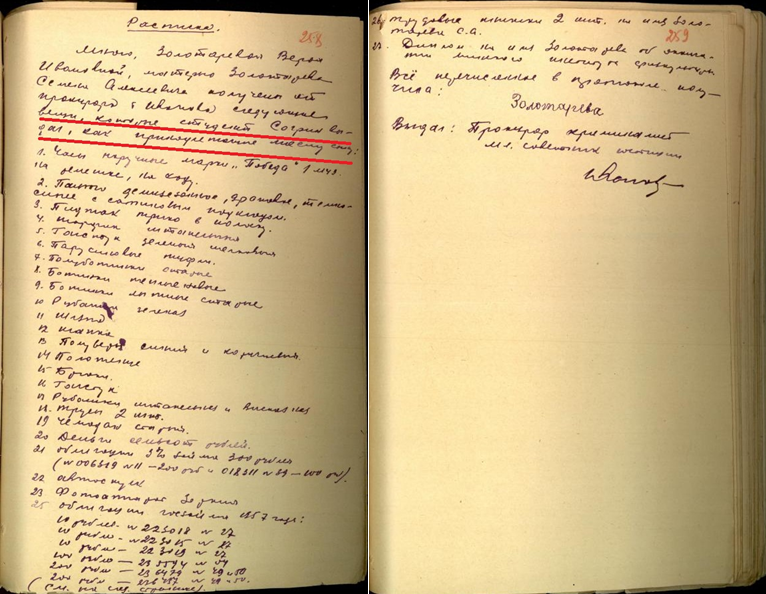 Расписка.
258
Мною, Золотаревой Верой
Ивановной, матерью Золотарева
Семена Алексеевича получены от
прокурора т Иванова следующие
вещи, которые студент Согрин вы-
дал, как принадлежащие моему сыну:
1. Часы наручные марки „Победа“
на ремешке, на ходу.
2. Пальто демисезонное, драповое, темно-
синее с сатиновым подкладом.
3. Пиджак трико в полоску.
4. шаровары штапельные
5. Галстук зеленый шелковый
6. Парусиновые туфли.
7. Полуботинки старые
8. Ботинки теплые новые
9. Ботинки лыжные старые
10 Рубашка зеленая
11
12 шапка
13 Пуловер синий и коричневый.
14 Полотенце
15 Брюки.
16 Галстук
17 Рубашки штапельная и вискозная
18. Трусы 2 шт.
19 Чемодан старый.
20 Деньги семьсот рублей.
21 облигации 3% займа 300 рублей
(№ 006319 №11 – 200 руб и 012311 № 39 – 100 руб).
22
23 Фотоаппарат Зоркий
25 облигации госзайма 1957 года:
10 рублей – № 223018 № 27
10 рубл – № 223015 № 27
10 рубл – 223019 № 27
100 рубл –
200 рубл –
200 рубл –
(См. на след. странице).
259
26 трудовые книжки 2 шт. на имя Золо-
тарева С.А.
27. Диплом на имя Золотарева об оконча-
нии минского института физкультуры
Всё перечисленное в протоколе полу-
чила:
Золотарева
Выдал: Прокурор криминалист
мл. советник юстиции
Иванов